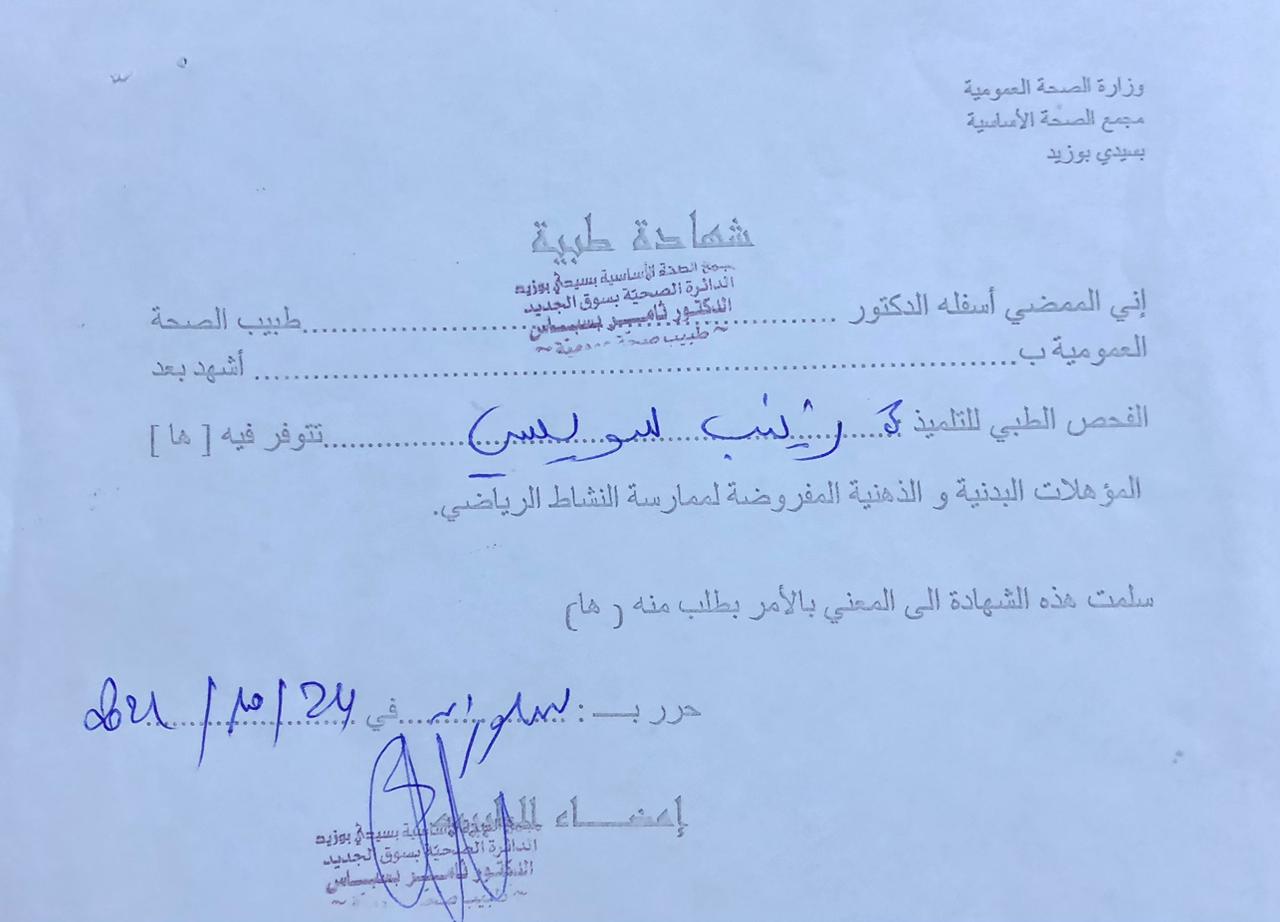 وزارة الصحة العمومية
مجمع الصحة الأساسية
بسيدي بوزيد
شهادة طبية
مجمع الصحة الأساسية بسيدي بوزيد
الدائرة الصحية بسوق الجديد
الدكتور ثامر بسباس
~ طبيب صحة عمومية ~
إني الممضي أسفله الدكتور ........ طبيب الصحة
العمومية ب ........ أشهد بعد
الفحص الطبي للتلميذ ة زينب سويسي ........ تتوفر فيه [ ها ]
المؤهلات البدنية و الذهنية المفروضة لممارسة النشاط الرياضي.
سلمت هذه الشهادة الى المعني بالأمر بطلب منه ( ها)
حرر بـ : ........ في 24 / 10 / 2021
إمضاء الطبيب
مجمع الصحة الأساسية بسيدي بوزيد
الدائرة الصحية بسوق الجديد
الدكتور ثامر بسباس
~ طبيب صحة ~